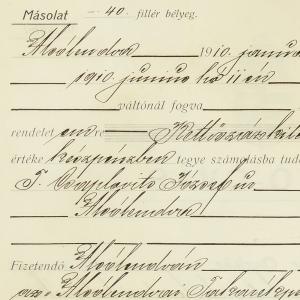 Másolat - 40. fillér bélyeg.
Alsólendva 1910. január
1910. junius hó 11 én
váltónál fogva
rendelet en re Kettőszázkile
értéke készpénzben tegye számolásba tud
T. Czaplovits József úr
Alsólendva
Fizetendő Alsólendván
az Alsólendvai Takarékp